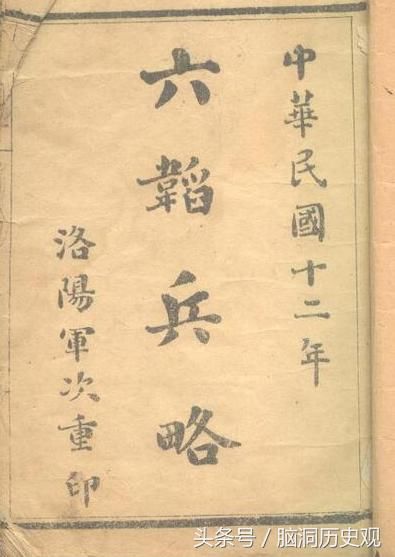 中華民國十二年
六韜兵略
洛陽軍次重印
头条号/脑洞历史观